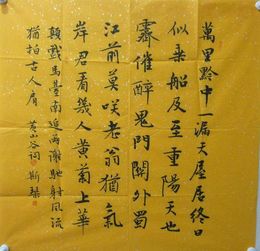 萬里黔中一漏天屋居終日
似乘船及至重陽天也
霽催醉鬼門關外蜀
江前莫咲老翁猶氣
岸君看幾人黃菊上華
顛戲馬臺南追兩謝馳射風流
猶拍古人肩 黃山谷詞 斯